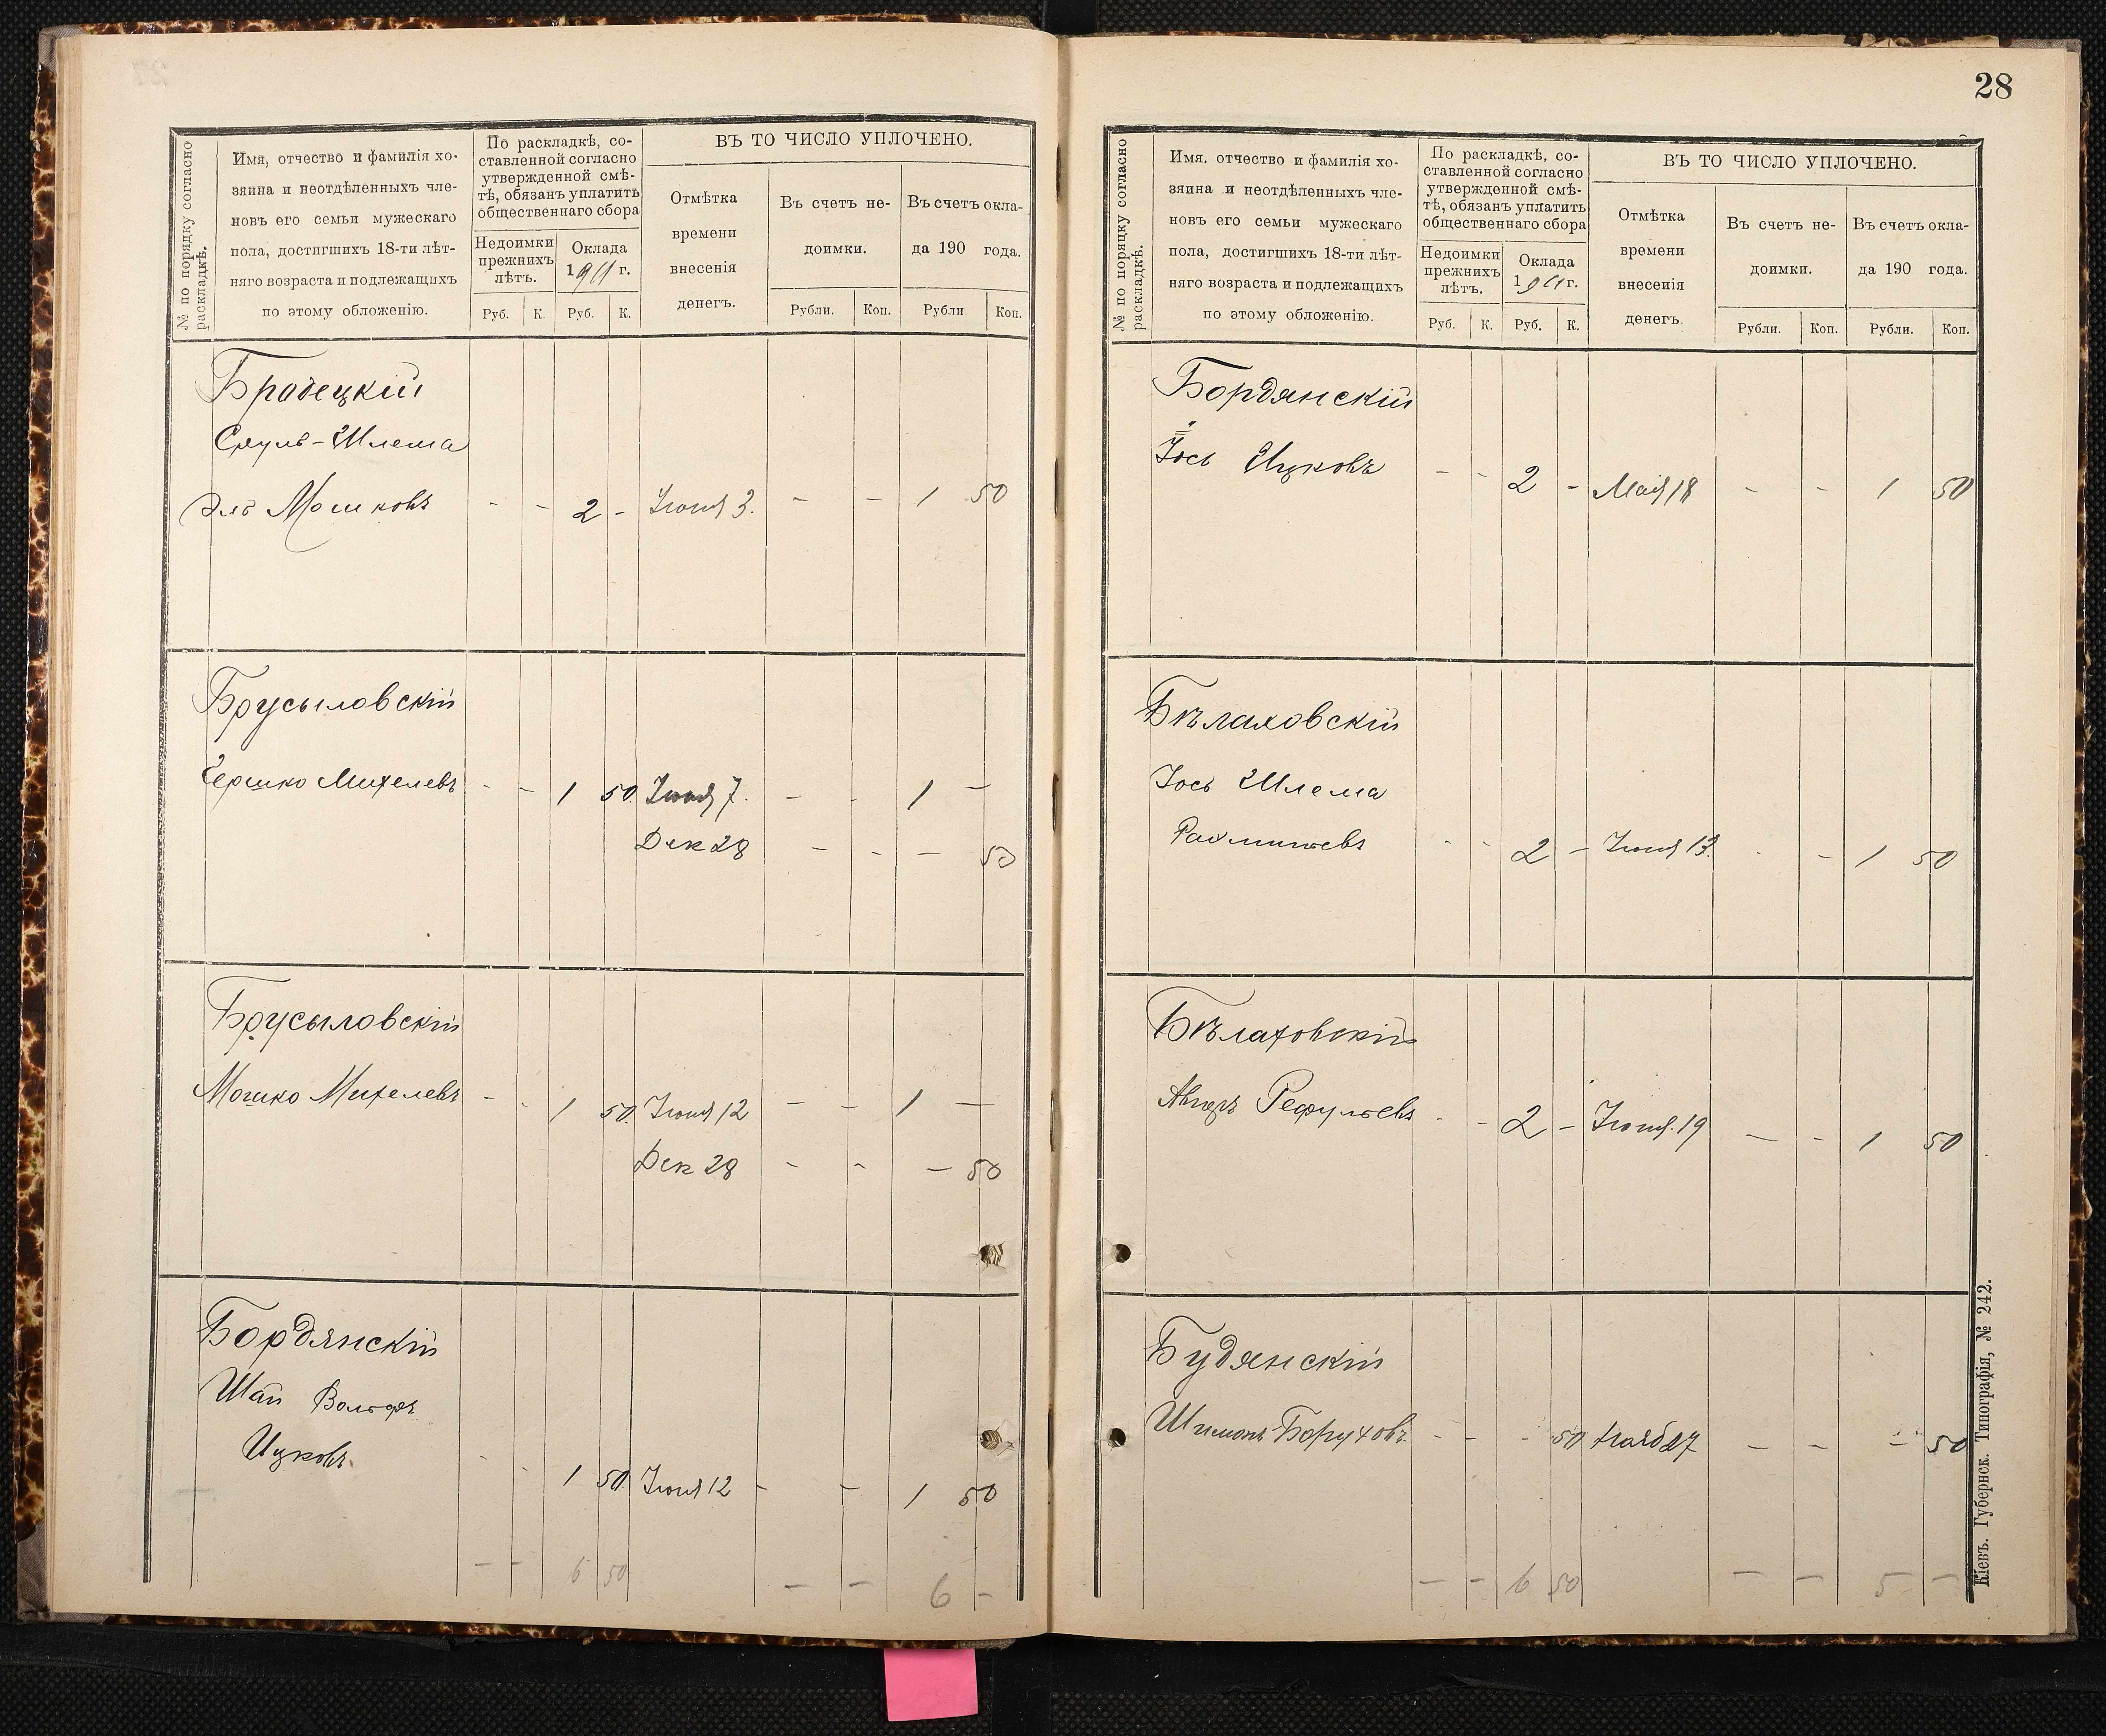 28
№ по порядку согласно раскладкѣ.
Имя, отчество и фамилія хо-
зяина и неотдѣленныхъ чле-
новъ его семьи мужескаго
пола, достигшихъ 18-ти лѣт-
няго возраста и подлежащихъ
по этому обложенію.
По раскладкѣ, со-
ставленной согласно
утвержденной смѣ-
тѣ, обязанъ уплатить
общественнаго сбора
Недоимки
прежнихъ
лѣтъ.
Оклада
1911 г.
Руб. К. Руб. К.
ВЪ ТО ЧИСЛО УПЛОЧЕНО.
Отмѣтка
времени
внесенія
денегъ.
Въ счетъ не-
доимки.
Въ счетъ окла-
да 190 года.
Рубли. Коп. Рубли Коп.
Бродецкій
Сруль-Шлема
Эль Мошковъ - - 2 - Іюня 3. - - 1 50
Брусыловскій
Гершко Михелевъ - - 1 50 Іюня 7. - - 1 -
Дек 28 - - - 50
Брусыловскій
Мошко Михелевъ - - 1 50 Іюня 12 - - 1 -
Дек 28 - - - 50
Бордянскій
Шая Вольфъ
Ицковъ
- - 1 50 Іюня 12 - - 1 50
- - 6 50 - - 6 -
№ по поряцку согласно раскладкѣ.
Имя. отчество и фамилія хо-
зяина и неотдѣленныхъ чле-
новъ его семьи мужескаго
пола, достигшихъ 18-ти лѣт-
няго возраста и подлежащихъ
по этому обложенію.
По раскладкѣ, со-
ставленной согласно
утвержденной смѣ-
тѣ, обязанъ уплатить
общественнаго сбора
Недоимки
прежнихъ
лѣтъ.
Оклада
1911 г.
Руб. К. Руб. К.
ВЪ ТО ЧИСЛО УПЛОЧЕНО.
Отмѣтка
времени
внесенія
денегъ.
Въ счетъ не-
доимки.
Въ счетъ окла-
да 190 года.
Рубли. Коп. Рубли. Коп.
Бордянскій
Іось Ицковъ - - 2 - Мая 18 - - 1 50
Бѣлаховскій
Іось Шлема
Рахмилевъ - - 2 - Іюня 13. - - 1 50
Бѣлаховскій
Рефулевъ - - 2 - Іюня 19 - - 1 50
Будянскій
Шимонъ Боруховъ - - - 50 Нояб 27 - - - 50
- - 6 50 - - 5 -
Кіевъ. Губернск. Типографія, № 242.